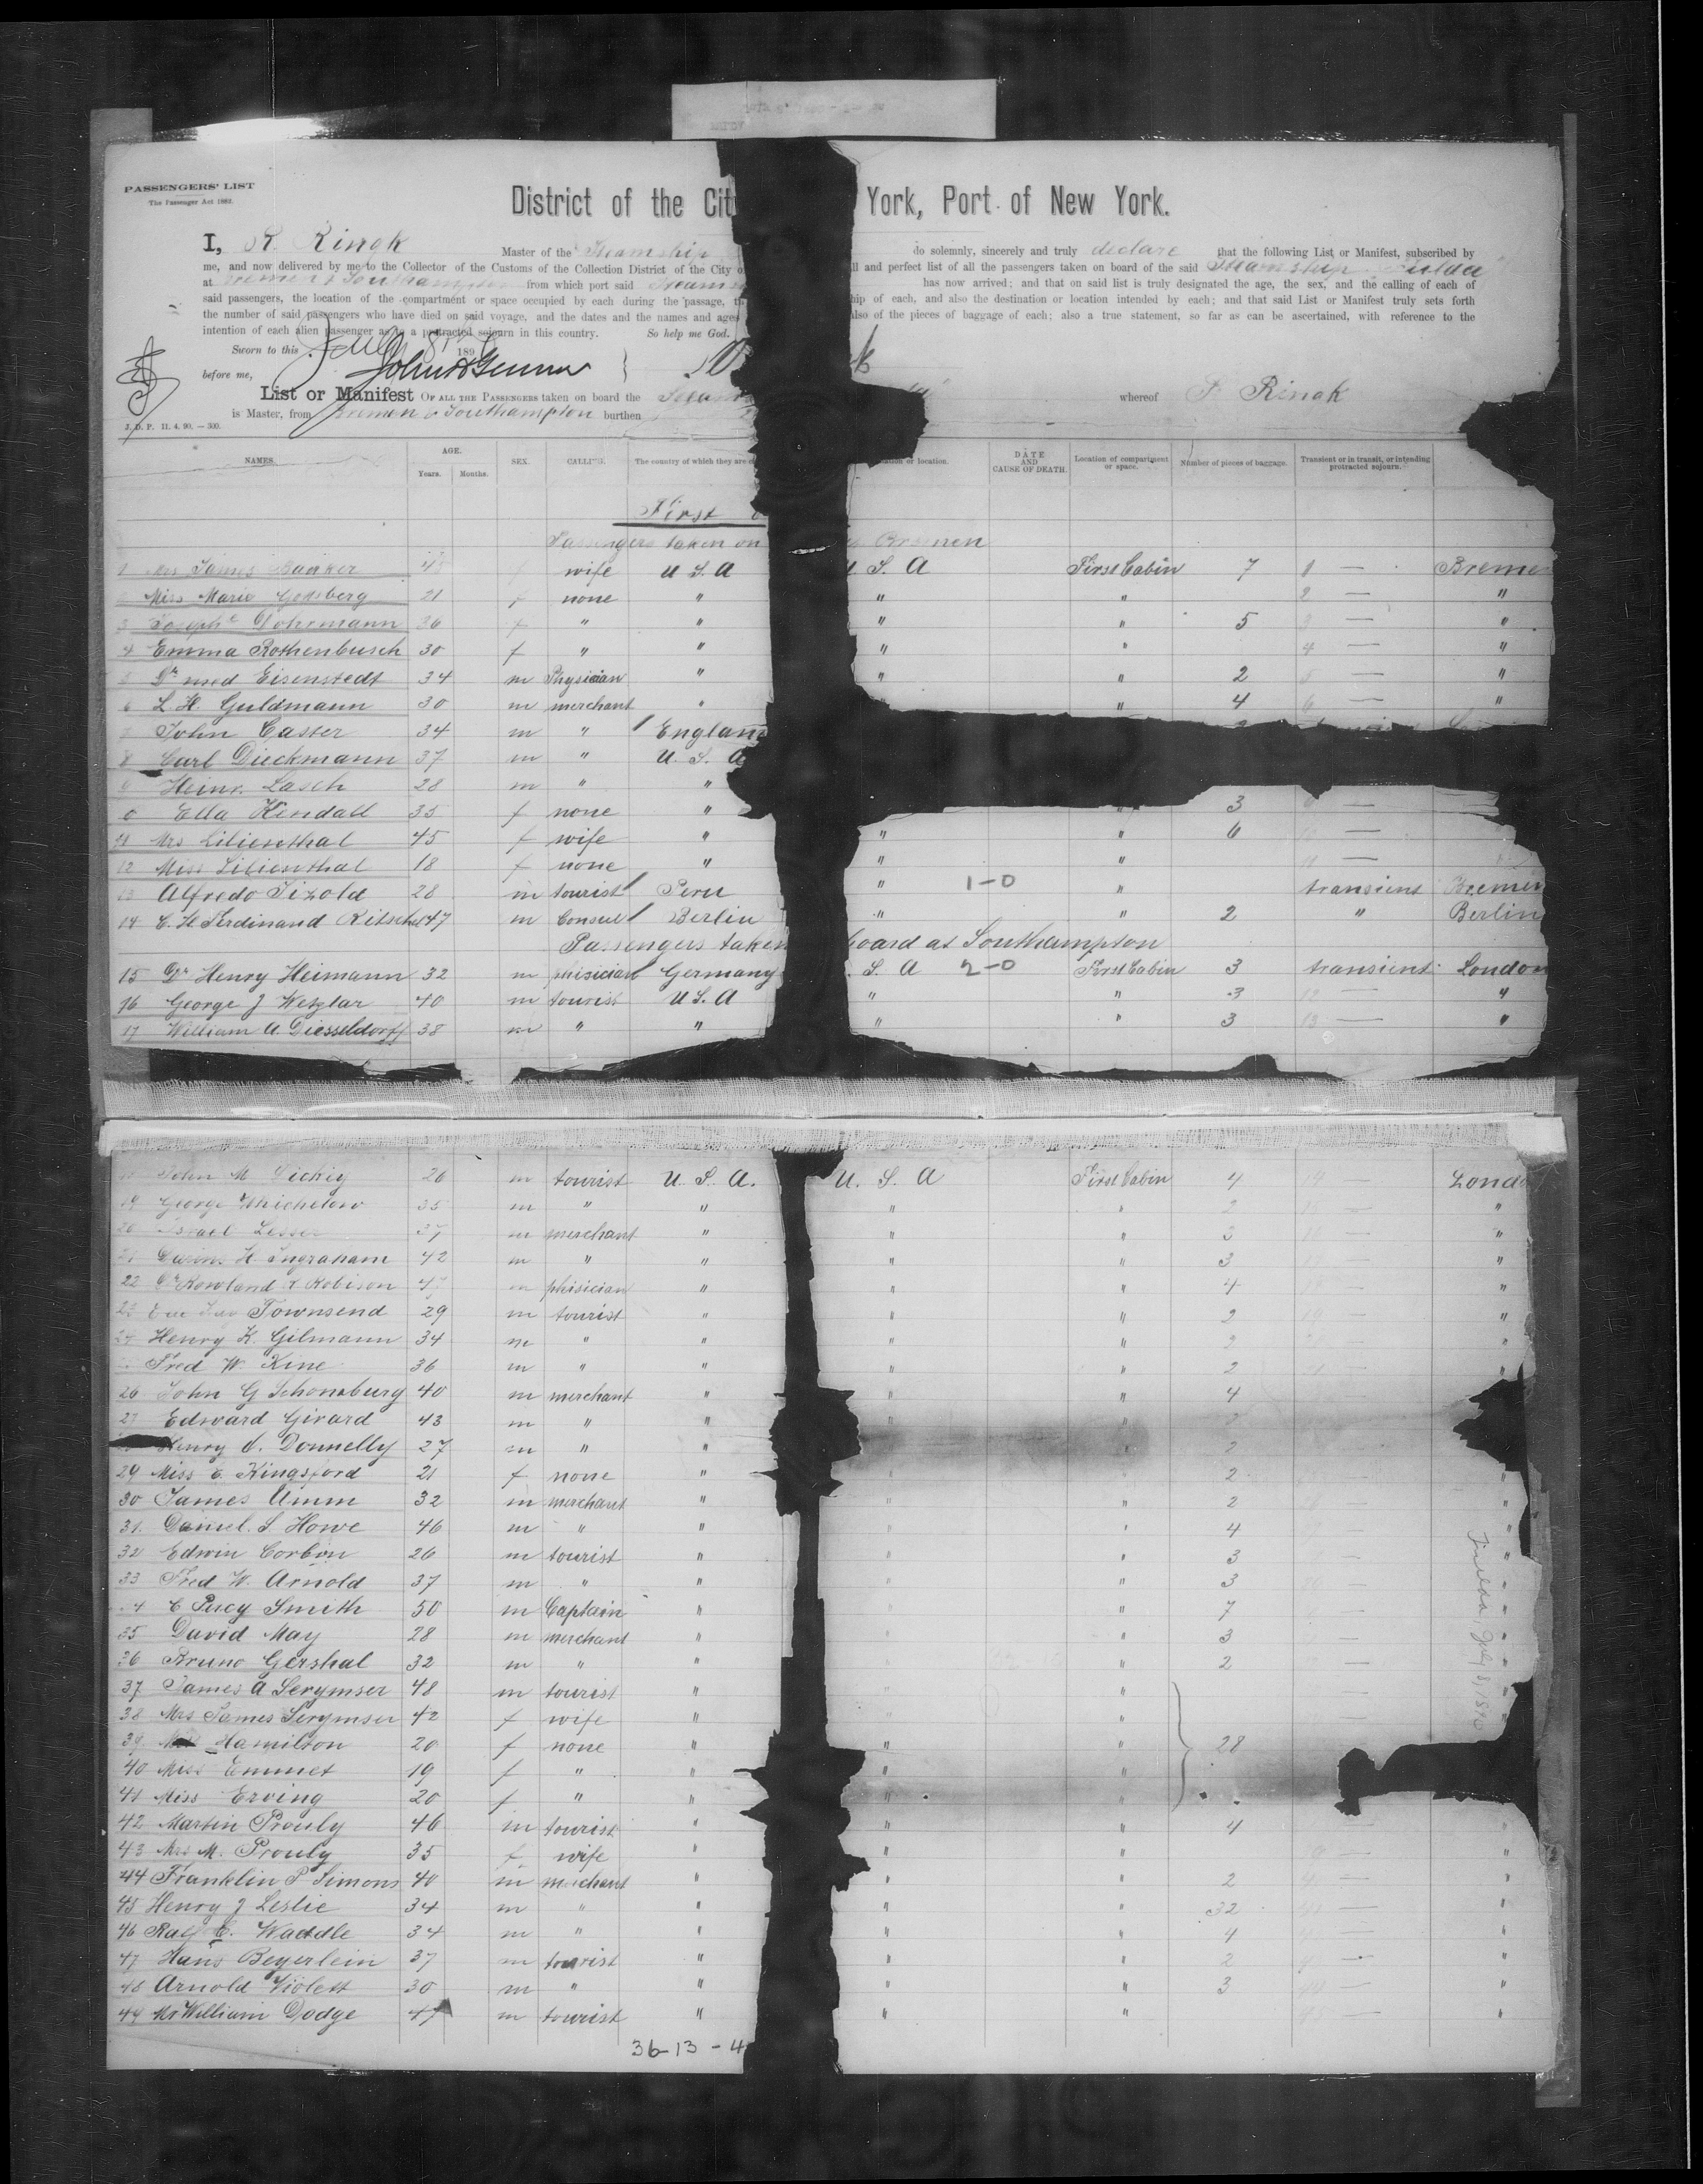 PASSENGERS' LIST
The Passenger Act 1882.
District of the Cit York, Port of New York.
I, R. Ringk Master of the Steamship do solemnly, sincerely and truly declare that the following List or Manifest, subscribed by
me, and now delivered by me to the Collector of the Customs of the Collection District of the City o ll and perfect list of all the passengers taken on board of the said Steamship Fulda
at Bremen & Southampton from which port said has now arrived; and that on said list is truly designated the age, the sex, and the calling of each of
said passengers, the location of the compartment or space occupied by each during the passage, t hip of each, and also the destination or location intended by each; and that said List or Manifest truly sets forth
the number of said passengers who have died on said voyage, and the dates and the names and ages also of the pieces of baggage of each; also a true statement, so far as can be ascertained, with reference to the
intention of each alien passenger as to a protracted sojourn in this country. So help me God.
Sworn to this July 8th 189
before me,
List or Manifest OF ALL THE PASSENGERS taken on board the whereof Ringk
is Master, from Bremen & Southampton burthen
J. D. P. 11. 4. 90. — 500.
NAMES. AGE. Years. Months. SEX. CALLING. The country of which they are ci ation or location. DATE AND CAUSE OF DEATH. Location of compartment or space. Number of pieces of baggage. Transient or in transit, or intending protracted sojourn.
First
Passengers taken on Bremen
1 Mrs James f wife U S. A S. A First Cabin 7 1 — Breme
Miss Marie Gottsberg 21 f none " " " 2 — "
3 Dohrmann 36 f " " " " 5 3 — "
4 Emma Rothenbusch 30 f " " " " 4 — "
5 Dr med Eisenstedt 34 m Physician " " " 2 5 — "
6 L. H. Guldmann 30 m merchant " " 4 6 — "
7 John Caster 34 m " England
8 Carl Dieckmann 37 m " U. S. A
9 Heinr. Lasch 28 m " "
0 Ella Kendall 35 f none " " 3 —
11 Mrs Lilienthal 45 f wife " " " 6 —
12 Miss Lilienthal 18 f none " " " —
13 Alfredo Tizold 28 m tourist Peru " 1-0 " transient Bremen
14 C. H. Ferdinand Ritschel 47 m Consul Berlin " " 2 " Berlin
Passengers taken board at Southampton
15 Dr Henry Heimann 32 m phisician Germany S. A 2-0 First Cabin 3 transient London
16 George J Wetzlar 40 m tourist U S. A " " 3 12 — "
17 William A. Diesseldorff 38 m " " " " 3 13 — "
John M 26 m tourist U. S. A. U. S. A First Cabin 4 14 — Londo
19 George 35 m " " " " 2 — "
20 Israel Lesser 37 m merchant " " " 3 — "
21 H. Ingraham 42 m " " " " 3 — "
22 Dr Rowland R Robison 47 m phisician " " " 4 — "
23 Townsend 29 m tourist " " " 2 — "
24 Henry K. Gilmann 34 m " " " " 2 — "
Fred W. Kine 36 m " " " " 2 — "
26 John G Schonsburg 40 m merchant " " " 4 —
27 Edward Girard 43 m " " " "
Henry J. Donnelly 27 m " " " 2
29 Miss E. Kingsford 21 f none " " 2 "
30 James Amm 32 m merchant " " " 2 "
31. Daniel. S Howe 46 m " " " " 4 "
32 Edwin Corbin 26 m tourist " " " 3 "
33 Fred W. Arnold 37 m " " " " 3 "
C Percy Smith 50 m Captain " " 7
35 David May 28 m merchant " " 3 —
36 Bruno Gershal 32 m " " " 2 —
37 James A Scrymser 48 m tourist " " " —
38 Mrs James Scrymser 42 f wife " " —
39 Hamilton 20 f none " " " 28
40 Miss Emmet 19 f " " " "
41 Miss Erving 20 f " " " "
42 Martin Prouly 46 m tourist " " " 4 "
43 Mrs M. Prouly 35 f wife " " " — "
44 Franklin P Simons 40 m merchant " " " 2 — "
45 Henry J Leslie 34 m " " " " 32 — "
46 Ralf E. Waddle 34 m " " " " 4 — "
47 Hans Beyerlein 37 m tourist " " " 2 — "
48 Arnold Violett 30 m " " " " 3 — "
49 Mr William Dodge 47 m tourist " " " — "
36-13-4
Fulda, July 8, 1890